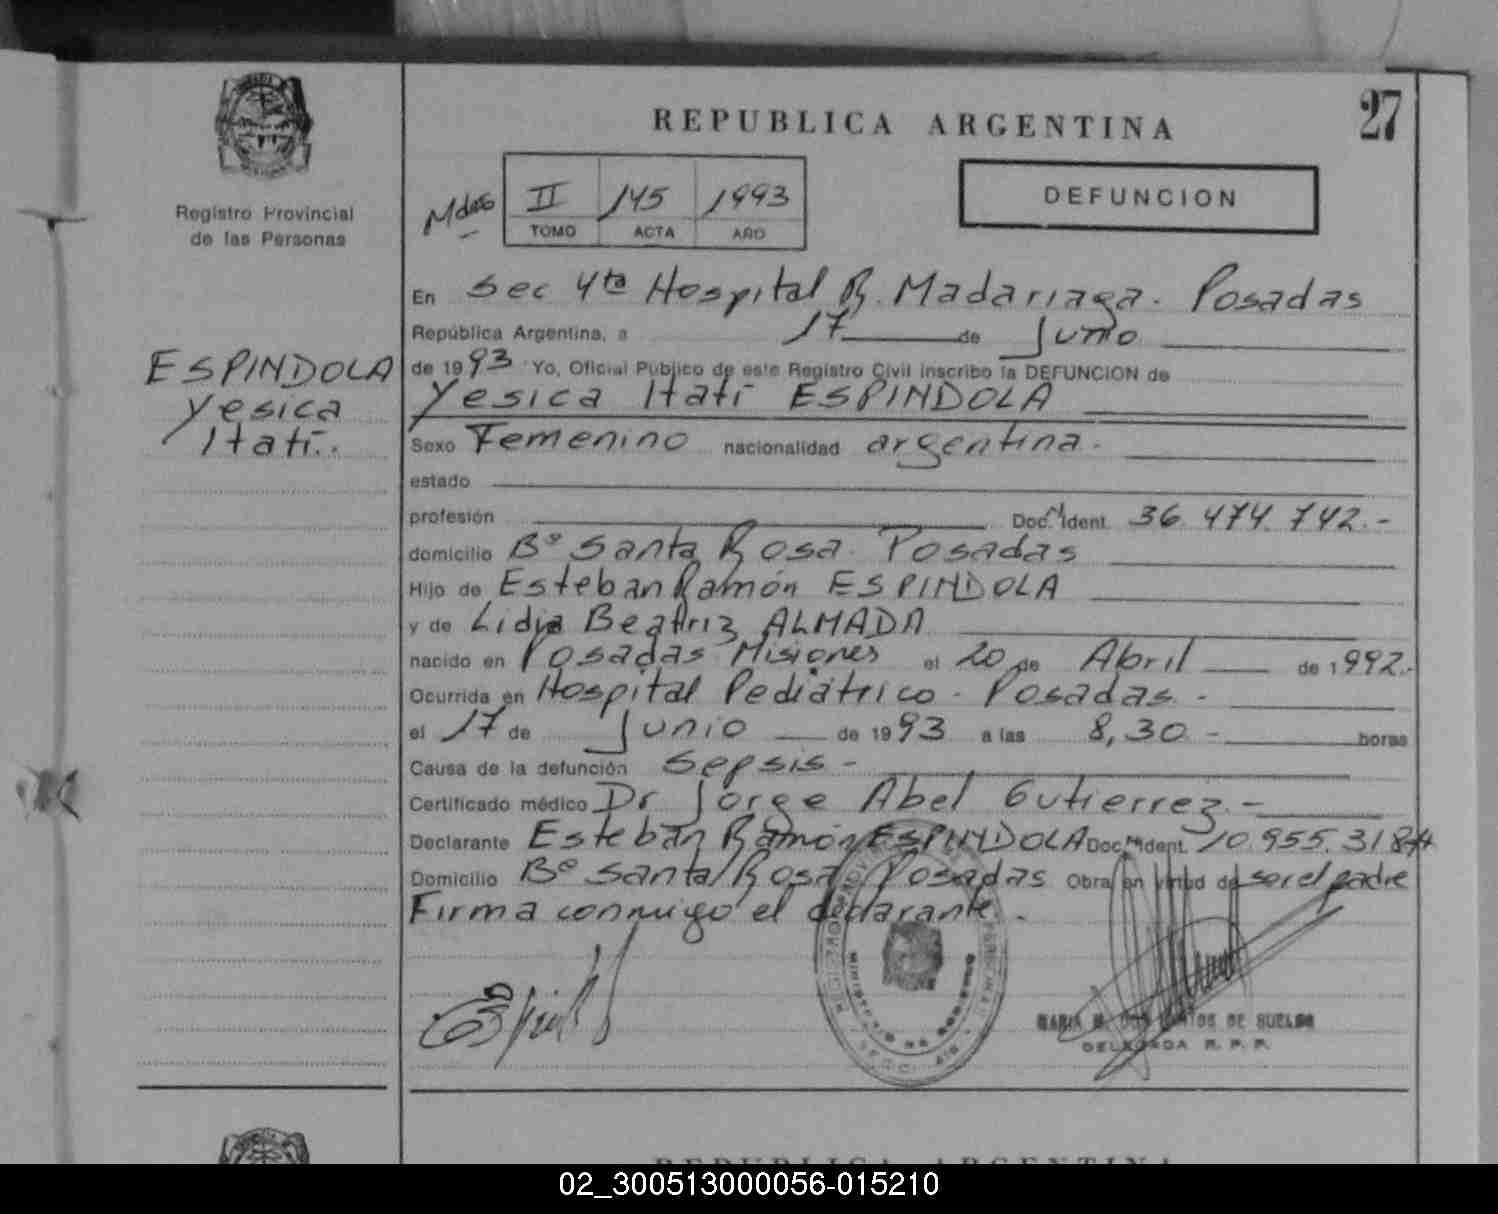 REPUBLICA ARGENTINA
27
Registro Provincial
de las Personas
Mdas
II 145 1993
TOMO ACTA AÑO
DEFUNCION
ESPINDOLA
Yesica
Itatí..
En Sec 4ta Hospital R. Madariaga. Posadas
República Argentina, a 17 de Junio
de 1993 Yo, Oficial Público de este Registro Civil inscribo la DEFUNCION de
Yesica Itatí ESPINDOLA
Sexo Femenino nacionalidad argentina.
estado
profesión Doc. Ident. 36.474.742.-
domicilio Bº Santa Rosa. Posadas
Hijo de Esteban Ramón ESPINDOLA
y de Lidia Beatriz ALMADA
nacido en Posadas Misiones el 20 de Abril de 1992.-
Ocurrida en Hospital Pediátrico - Posadas. -
el 17 de Junio de 1993 a las 8,30 - horas
Causa de la defunción Sepsis -
Certificado médico Dr Jorge Abel Gutierrez. -
Declarante Esteban Ramón ESPINDOLA Doc. Ident. 10.955.318
Domicilio Bº Santa Rosa Posadas Obra en virtud de ser el padre
Firma conmigo el declarante. -
MARIA DE SUELDO
DELEGADA R. P. P.
REPUBLICA ARGENTINA
02_300513000056-015210